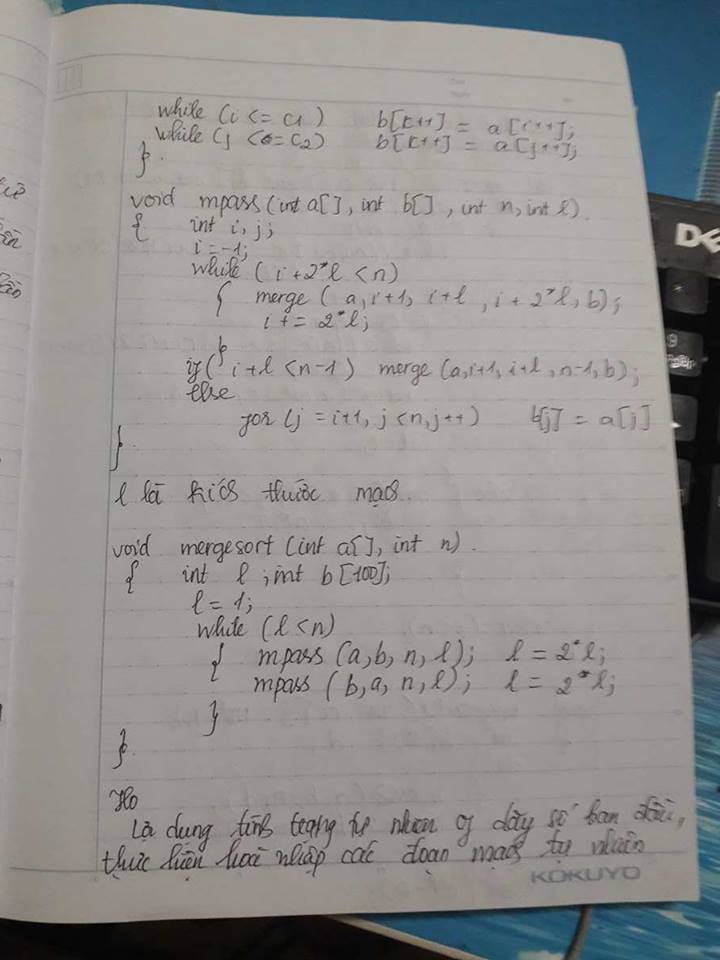 while (i <= c1) b[k++] = a[i++];
while (j <= c2) b[k++] = a[j++];
}
void mpass(int a[], int b[], int n, int l)
{ int i, j;
i = -1;
while (i + 2*l < n)
{ merge (a, i+1, i+l, i + 2*l, b);
i += 2*l;
}
if ( i+l < n-1) merge (a, i+1, i+l, n-1, b);
else
for (j = i+1, j < n, j++) b[j] = a[j]
}
l là kích thước mạch.
void mergesort (int a[], int n)
{ int l ; int b [100];
l = 1;
while (l < n)
{ mpass (a, b, n, l); l = 2*l;
mpass (b, a, n, l); l = 2*l;
}
}
Lợi dụng tình trạng tự nhiên dãy số ban đầu,
thực hiện hoà nhập các đoạn mạch tự nhiên
KOKUYO
DE